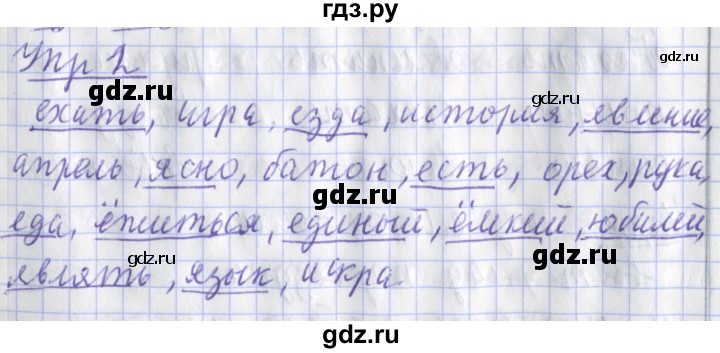 гдз.ру
Упр 2
gdz.ru gdz.ru
ехать, игра, езда, история, явление,
апрель, ясно, батон, есть, орех, рука,
gdz.ru gdz.ru
еда, ёжиться, единый, ёмкий, юбилей,
являть, язык, искра
gdz.ru